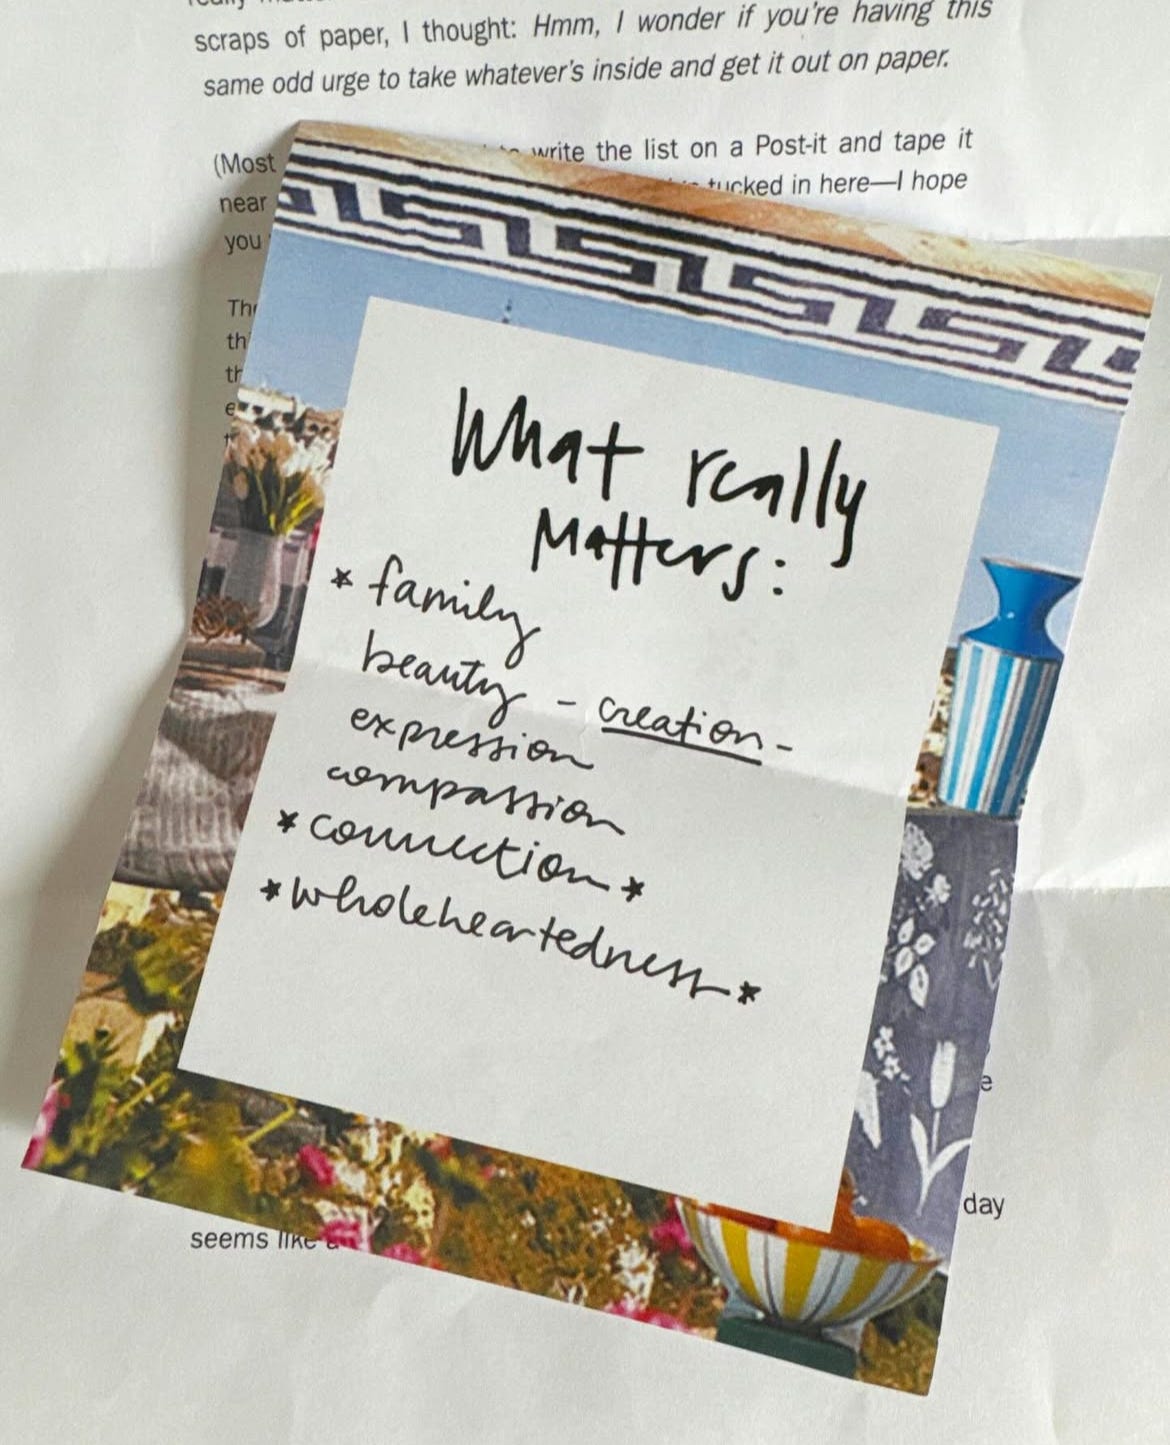 scraps of paper, I thought: Hmm, I wonder if you're having this
same odd urge to take whatever's inside and get it out on paper.
(Most write the list on a Post-it and tape it
near tucked in here—I hope
you
What really
Matters:
* family
beauty - creation -
expression
compassion
* connection *
* wholeheartedness *
day
seems like a